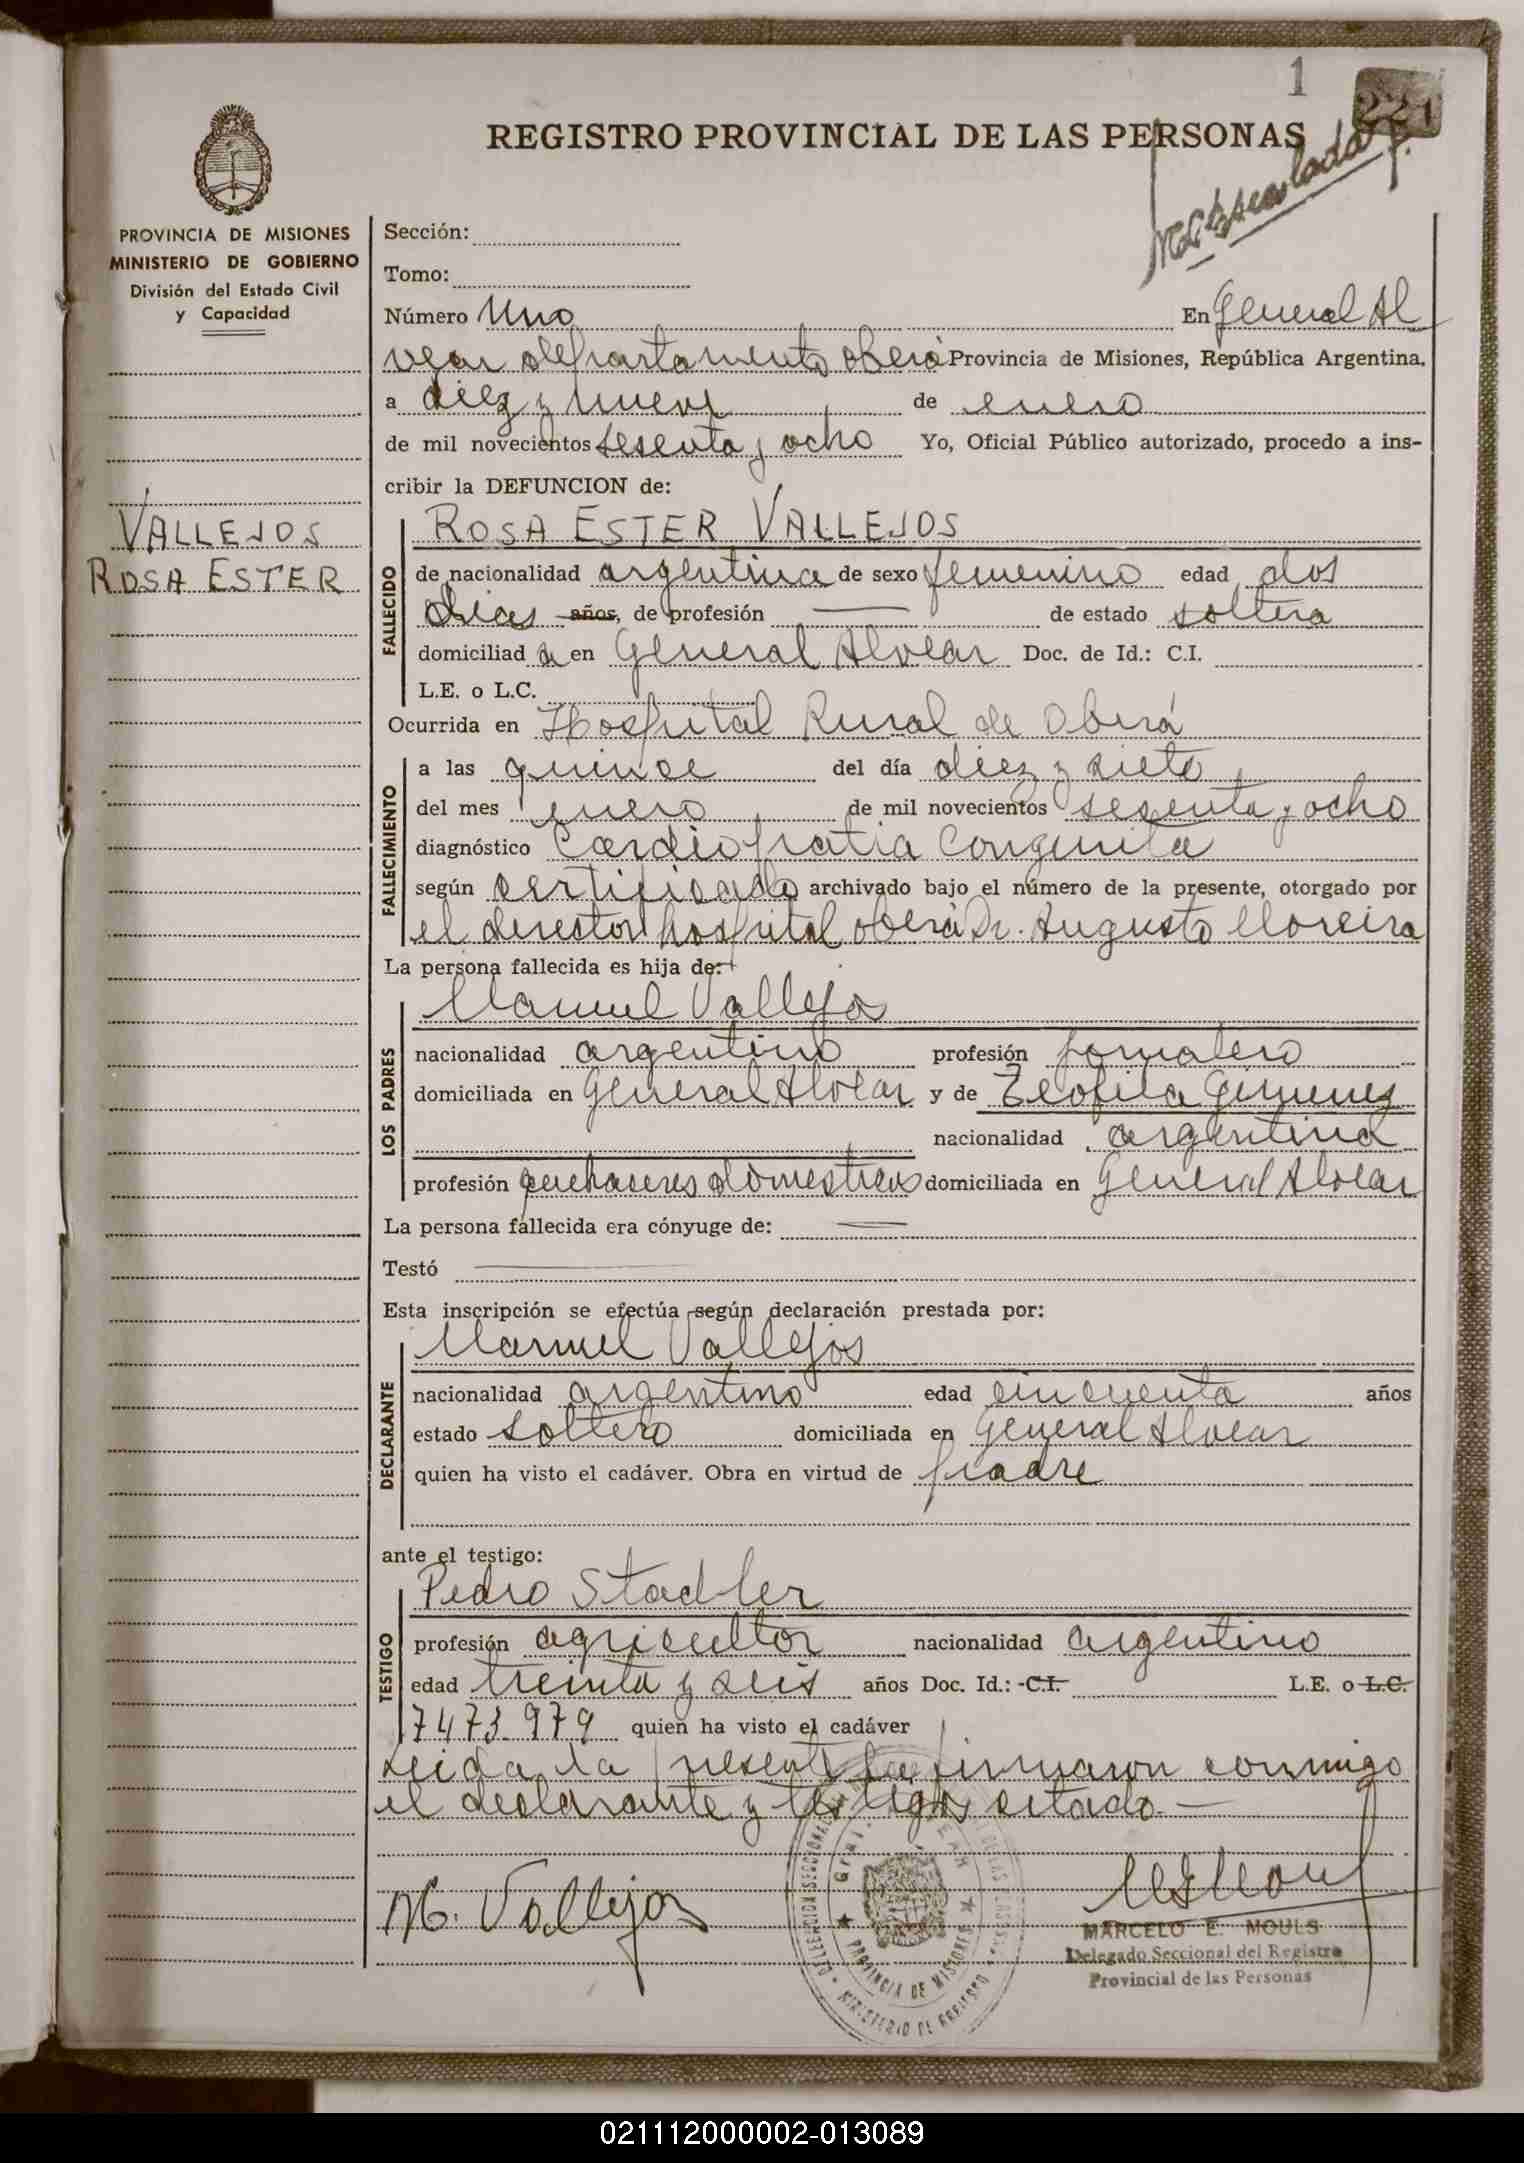 1
221
REGISTRO PROVINCIAL DE LAS PERSONAS
PROVINCIA DE MISIONES
MINISTERIO DE GOBIERNO
División del Estado Civil
y Capacidad
VALLEJOS
ROSA ESTER
Sección:
Tomo:
Número Uno En General Al
vear departamento oberá Provincia de Misiones, República Argentina,
a diez y nueve de enero
de mil novecientos sesenta y ocho Yo, Oficial Público autorizado, procedo a ins-
cribir la DEFUNCION de:
FALLECIDO
ROSA ESTER VALLEJOS
de nacionalidad argentina de sexo femenino edad dos
dias años, de profesión —— de estado soltera
domiciliad a en General Alvear Doc. de Id.: C.I.
L.E. o L.C.
Ocurrida en Hospital Rural de Oberá
FALLECIMIENTO
a las quince del día diez y siete
del mes enero de mil novecientos sesenta y ocho
diagnóstico Cardiopatia Congenita
según certificado archivado bajo el número de la presente, otorgado por
el director hospital oberá Dr. Augusto Moreira
La persona fallecida es hija de:
LOS PADRES
Manuel Vallejos
nacionalidad argentino profesión jornalero
domiciliada en General Alvear y de Teofila Gimenez
nacionalidad argentina
profesión quehaceres domesticos domiciliada en General Alvear
La persona fallecida era cónyuge de: ——
Testó ——
Esta inscripción se efectúa según declaración prestada por:
DECLARANTE
Manuel Vallejos
nacionalidad argentino edad cincuenta años
estado soltero domiciliada en General Alvear
quien ha visto el cadáver. Obra en virtud de padre
ante el testigo:
TESTIGO
Pedro Stadler
profesión agricultor nacionalidad argentino
edad treinta y seis años Doc. Id.: C.I. L.E. o L.C.
7473.979 quien ha visto el cadáver
Leida la presente la firmaron conmigo
el declarante y testigos citado.—
M. Vallejos
PROVINCIA DE MISIONES
MARCELO E. MOULS
Delegado Seccional del Registro
Provincial de las Personas
021112000002-013089